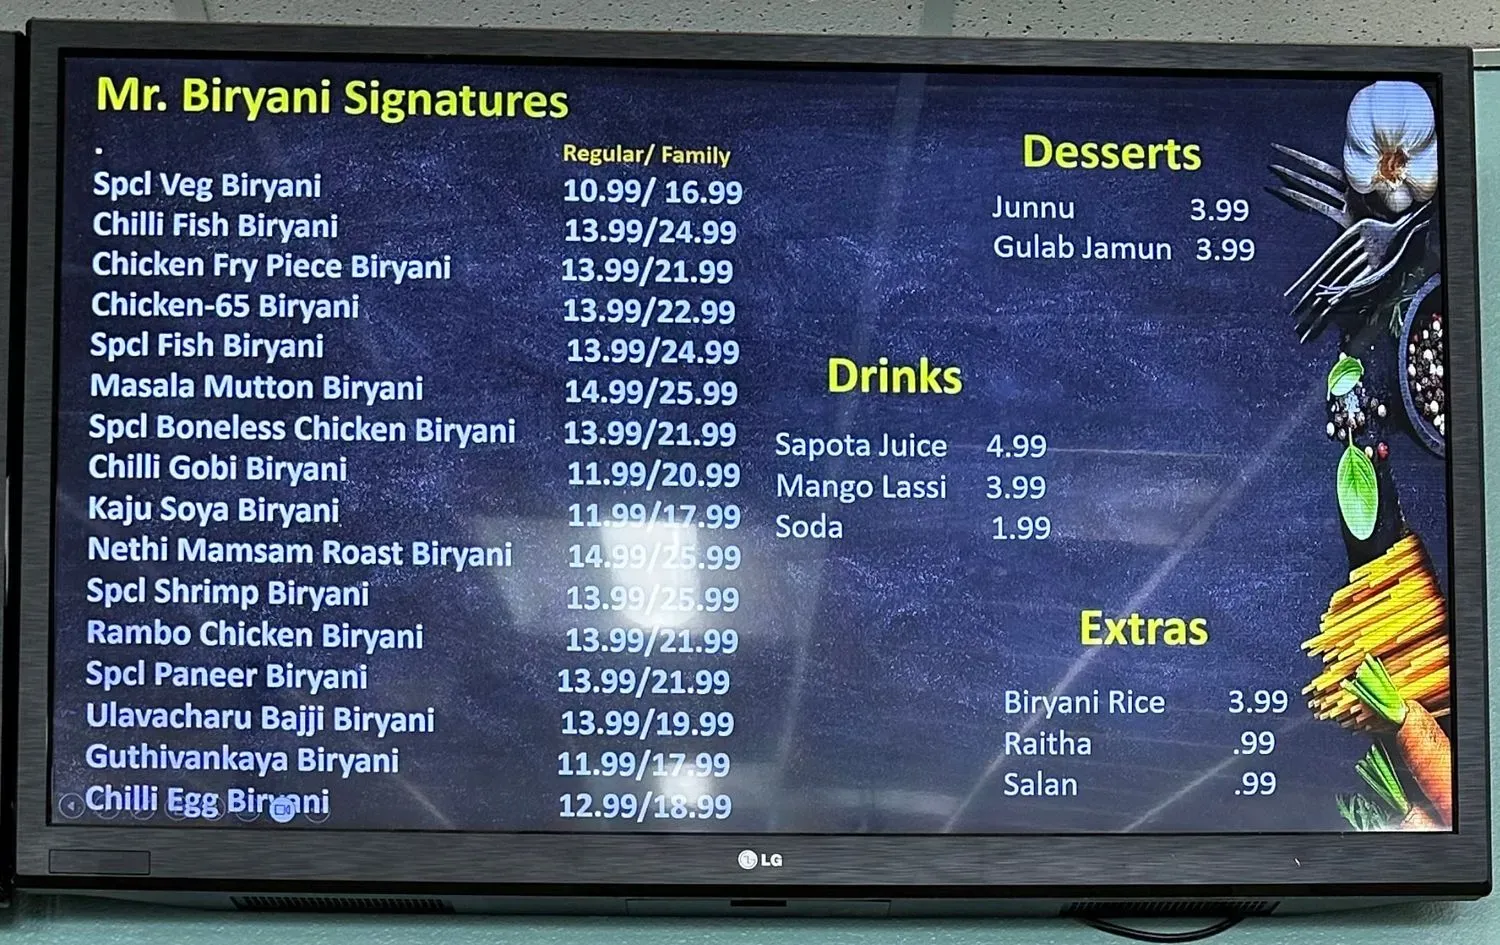 Mr. Biryani Signatures
.
Regular/ Family
Spcl Veg Biryani 10.99/ 16.99
Chilli Fish Biryani 13.99/24.99
Chicken Fry Piece Biryani 13.99/21.99
Chicken-65 Biryani 13.99/22.99
Spcl Fish Biryani 13.99/24.99
Masala Mutton Biryani 14.99/25.99
Spcl Boneless Chicken Biryani 13.99/21.99
Chilli Gobi Biryani 11.99/20.99
Kaju Soya Biryani 11.99/17.99
Nethi Mamsam Roast Biryani 14.99/25.99
Spcl Shrimp Biryani 13.99/25.99
Rambo Chicken Biryani 13.99/21.99
Spcl Paneer Biryani 13.99/21.99
Ulavacharu Bajji Biryani 13.99/19.99
Guthivankaya Biryani 11.99/17.99
Chilli Egg Biryani 12.99/18.99
Desserts
Junnu 3.99
Gulab Jamun 3.99
Drinks
Sapota Juice 4.99
Mango Lassi 3.99
Soda 1.99
Extras
Biryani Rice 3.99
Raitha .99
Salan .99
LG